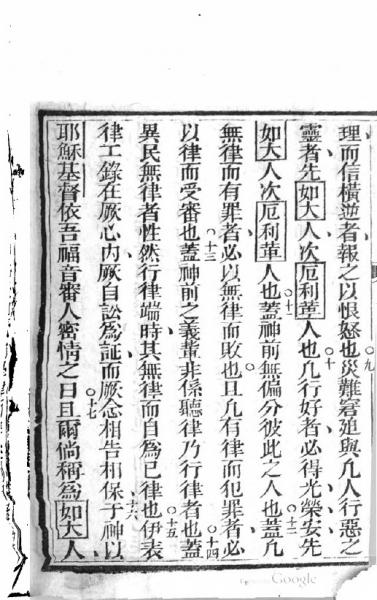 理而信橫逆者報之以恨怒也○九災難窘迫與凡人行惡之
靈者先如大人次厄利軍人也○十凡行好者必得光榮安先
如大人次厄利軍人也○十一蓋神前無偏分彼此之人也○十二蓋凡
無律而有罪者必以無律而敗也且凡有律而犯罪者必
以律而受審也○十三蓋神前之義輩非係聽律乃行律者也○十四蓋
異民無律者性然行律端時其無律而自為己律也○十五伊表
律工錄在厥心內厥自訟為証而厥念相告相保于○十六神以
耶穌基督依吾福音審人密情之日○十七且爾倘稱為如大人
Google